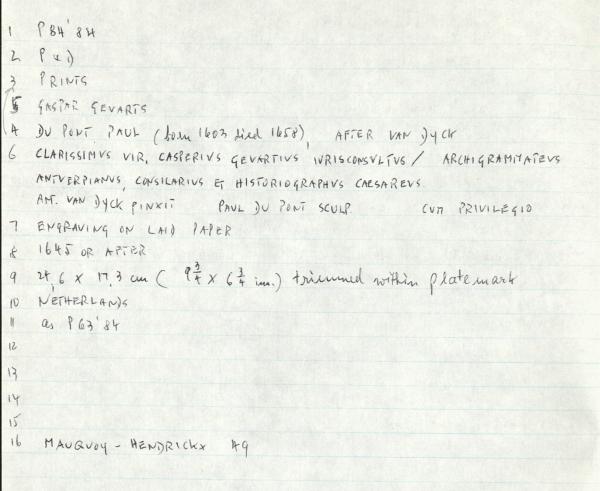 1 P 84'84
2 P x i)
3 PRINTS
5 GASPAR GEVARTS
4 DU PONT PAUL (born 1603 died 1658), AFTER VAN DYCK
6 CLARISSIMVS VIR, CASPERIVS GEVARTIVS IVRISCONSVLTVS / ARCHIGRAMMATEVS
ANTVERPIANVS, CONSILARIVS ET HISTORIOGRAPHVS CAESAREVS.
ANT. VAN DYCK PINXIT PAUL DU PONT SCULP. CUM PRIVILEGIO
7 ENGRAVING ON LAID PAPER
8 1645 OR AFTER
9 24,6 x 17,3 cm ( 9 3/4 x 6 3/4 in.) trimmed within platemark
10 NETHERLANDS
11 as P 63'84
12
13
14
15
16 MAUQUOY - HENDRICKX 49